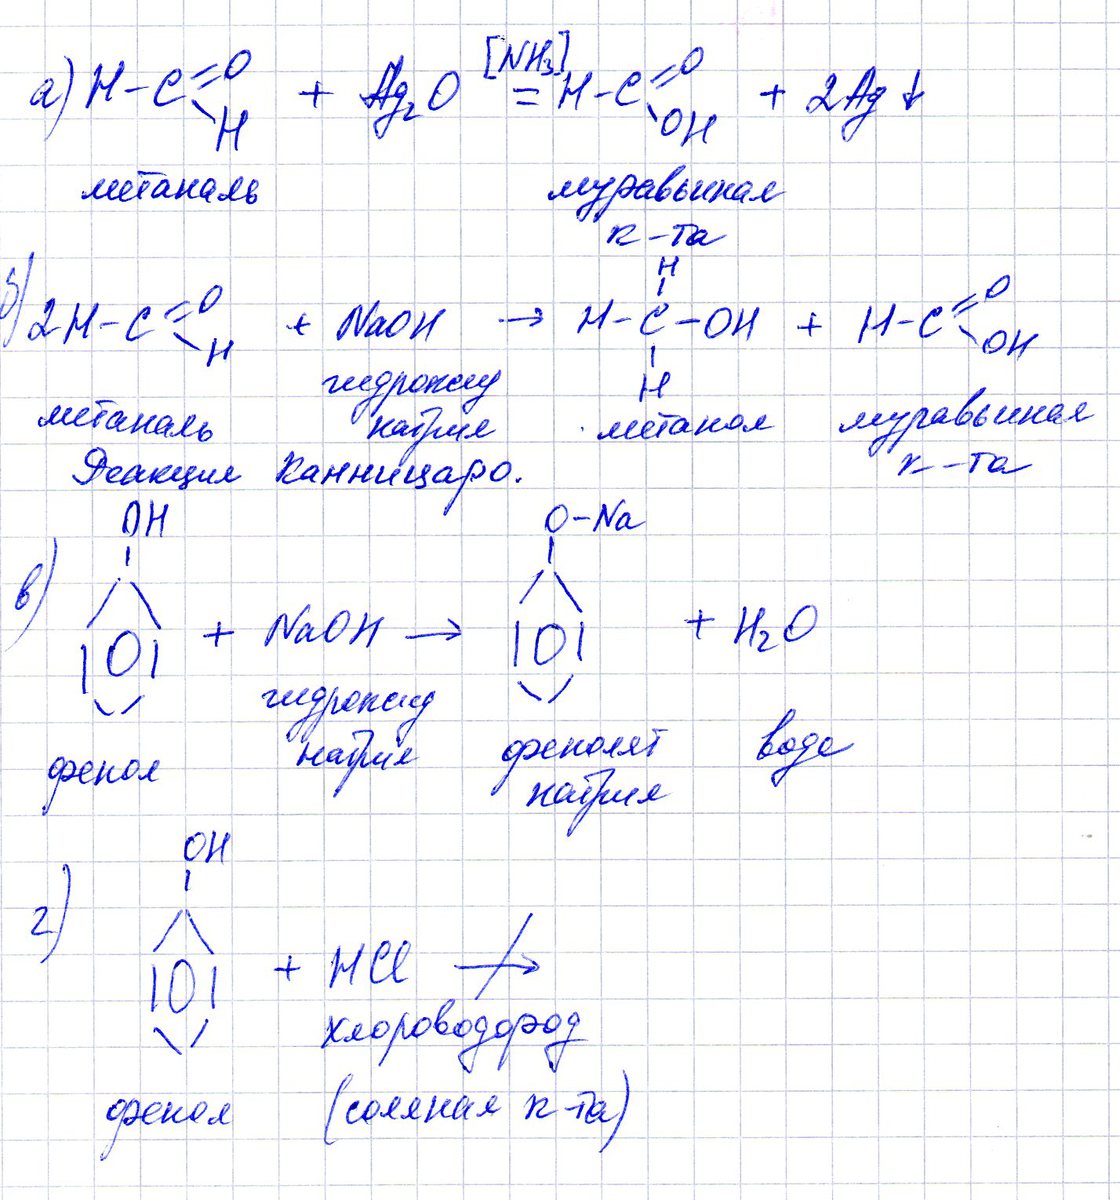 а) H-C=O + Ag2O [NH3] = H-C=O + 2Ag↓
H OH
метаналь муравьиная
к-та
H
б) 2H-C=O + NaOH → H-C-OH + H-C=O
H H OH
метаналь гидроксид натрия метанол муравьиная к-та
Реакция Канницаро.
OH O-Na
в) + NaOH → + H2O
фенол гидроксид натрия фенолят натрия вода
OH
г) + HCl
хлороводород
фенол (соляная к-та)